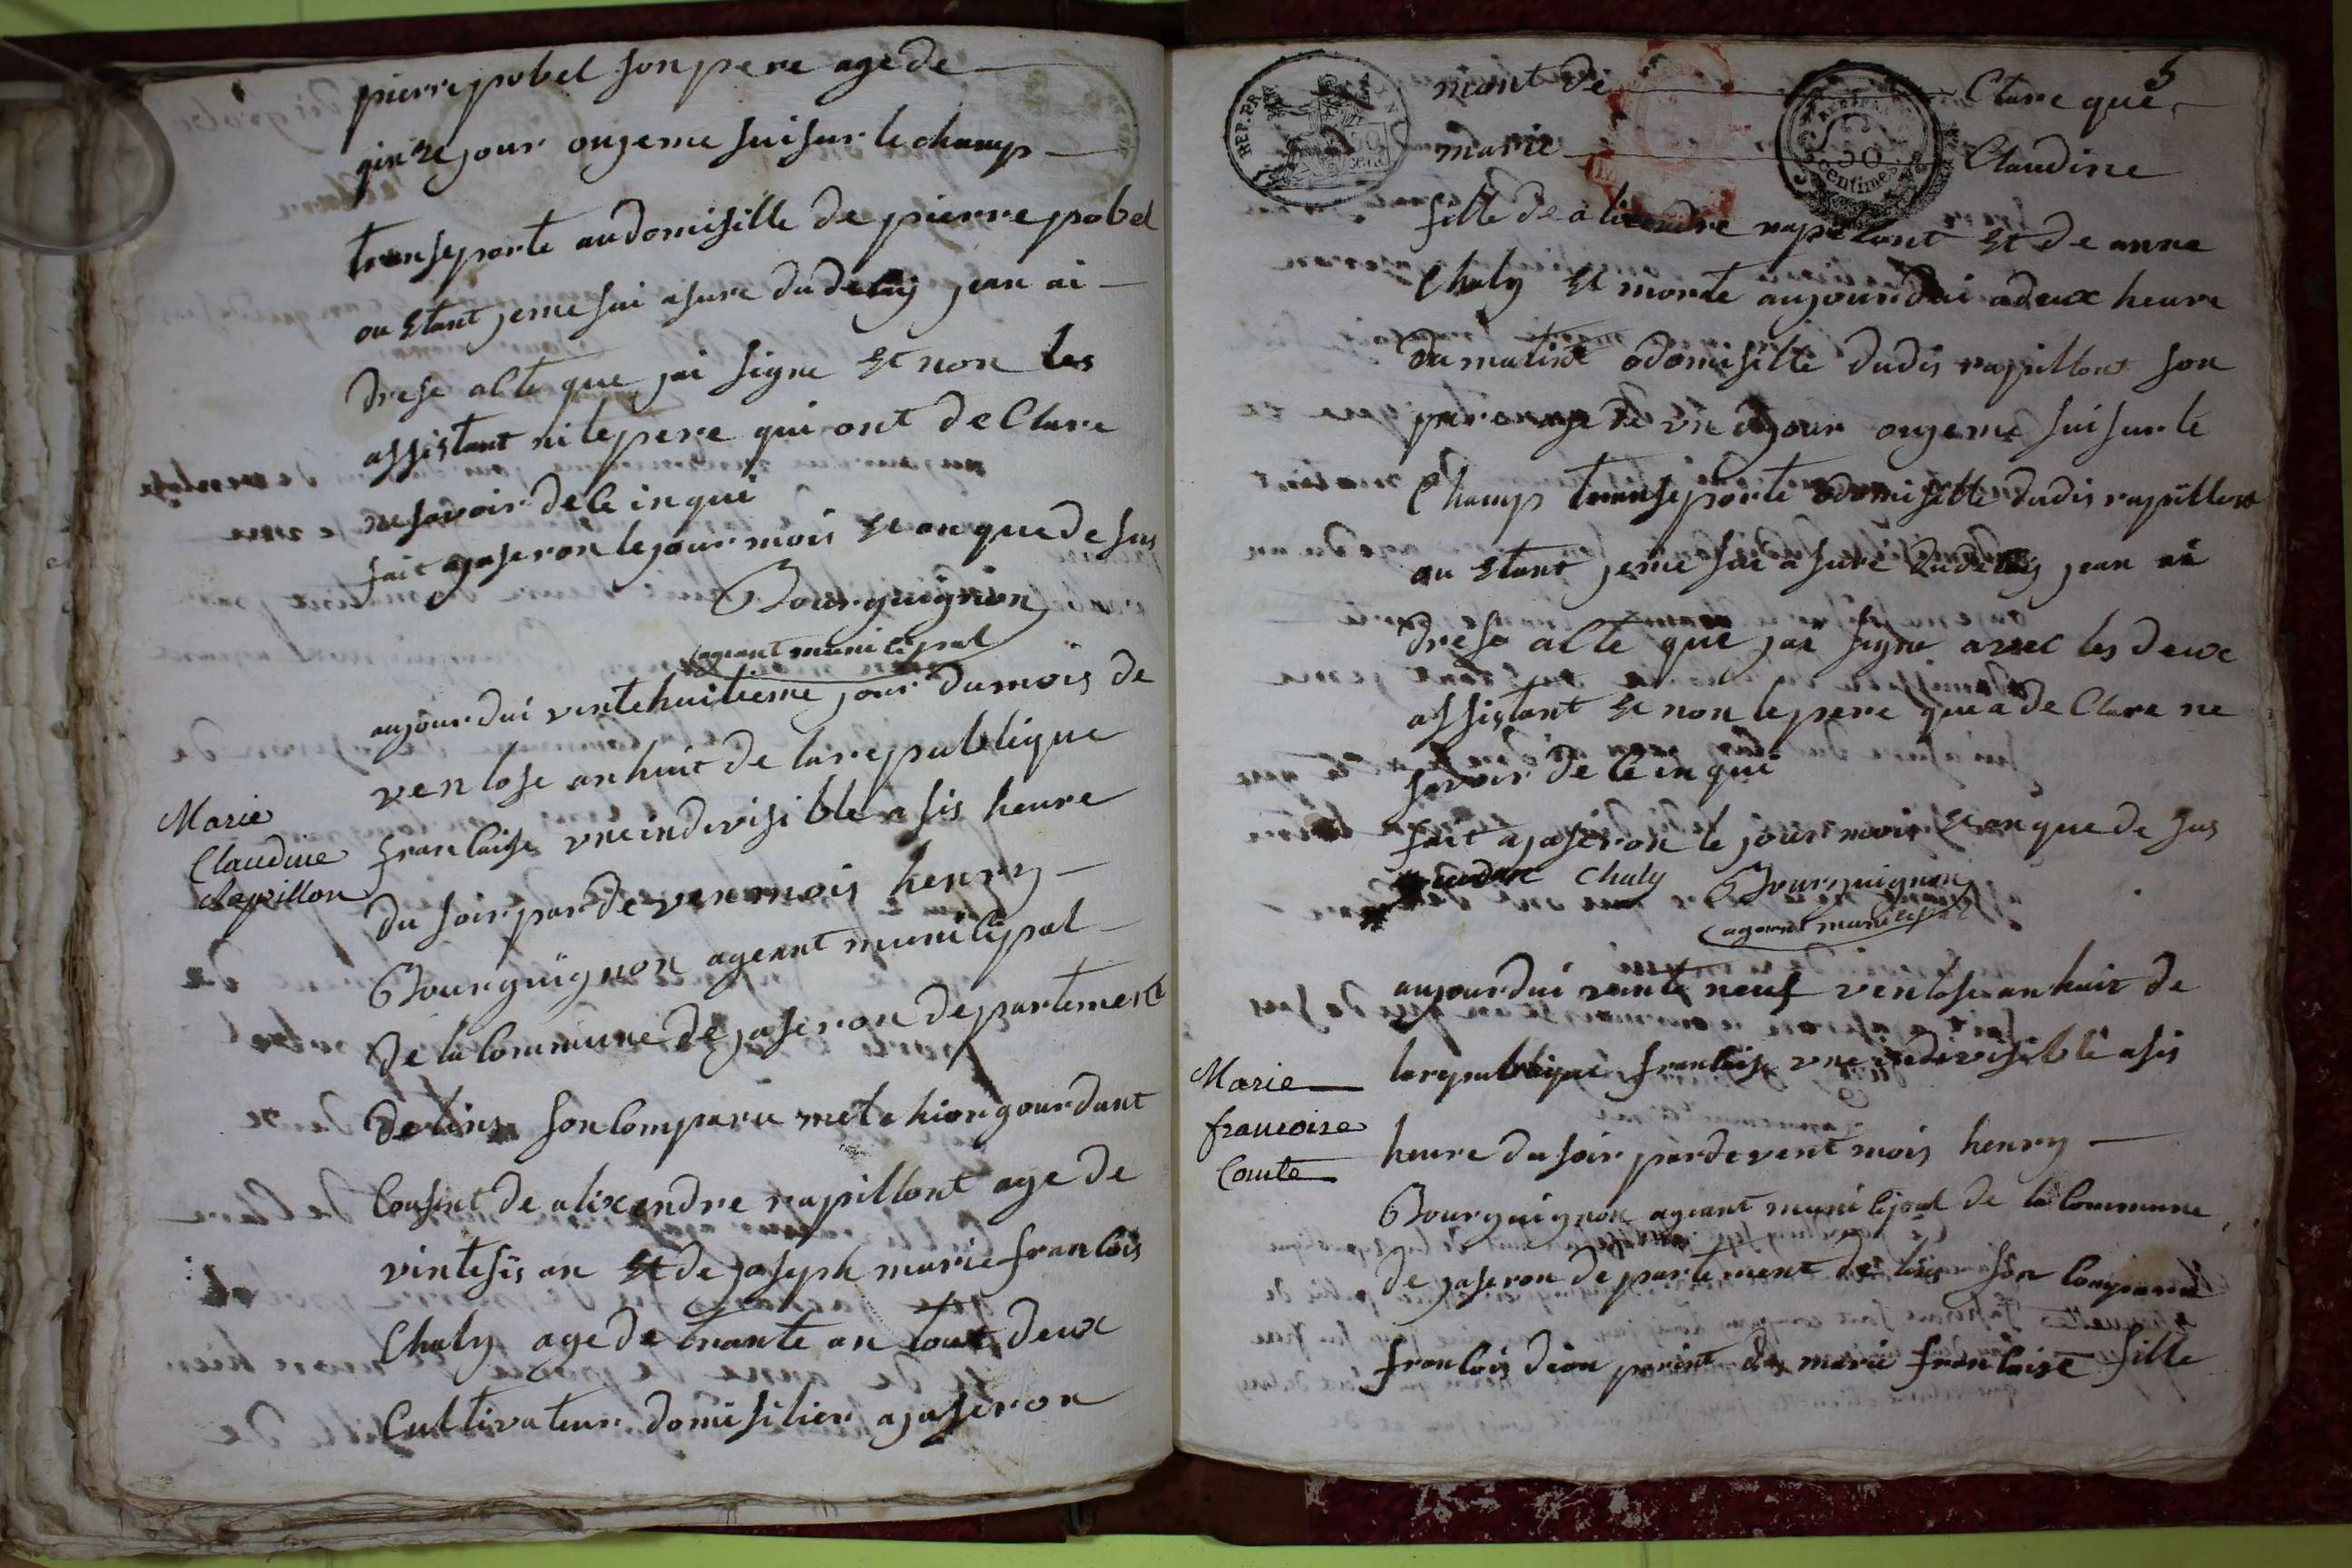 pierre pobel son pere age de
quinze jour ou jeme sui sur le champ
transeporte au domisille de pierre pobel
ou étant jeme sui asure du desaj jean ai
drese alte que jai signe et non les
assistant ni le pere qui ont de Clare
ne savoir de ce in qui
fait a jaseron le jour mois et an que de sus
Bourguignon
ageant municipal
aujourdui vintehuitieme jour du mois de
ventose an huit de la republique
francaise une indivisible a sis heure
Marie
Claudine
rapillon
du soir par de ven mois henry
Bourguignon ageant municipal
de la Commune de jaseron departement
de lins son Comparu melchior gourdant
Cousint de alixendre rapillont age de
vintesis an et de joseph marie francois
Chaly age de trante an tout deux
Cultivateur domisilier a jaseron
5
REP. FRA
50
Centimes
mant de Clare que
marie Claudine
fille de alixendre rapillont et de anne
Chaly et morte aujourdui a deux heure
du matint o domisille dudis rapillont son
pere age de un jour ou jeme sui sur le
Champ transeporte o domisille dudis rapillont
ou étant jeme sui a sure du desaj jean ai
drese alte que jai signe avec les deux
assistant et non le pere que a de Clare ne
savoir de ce in qui
fait a jaseron le jour mois et an que de sus
Chaly Bourguignon
ageant municipal
aujourdui vinte neuf ventose an huit de
la republique francaise une indivisible a sis
Marie
francoise
Comte
heure du soir pardevent mois henry
Bourguignon ageant municipal de la Commune
de jaseron departement de lins son Comparu
francois dion parint de marie francoise fille